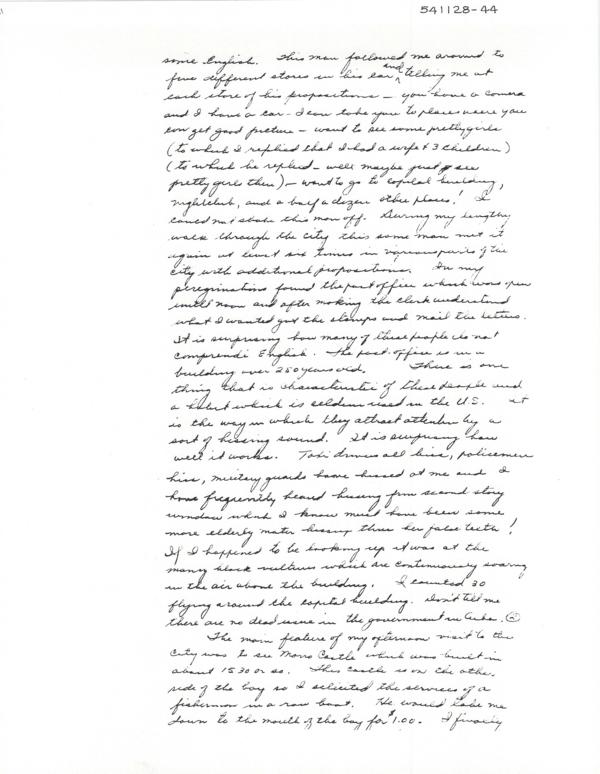 541128-44
some English. This man followed me around to
five different stores in his car and telling me at
each store of his propositions - you have a camera
and I have a car - I can take you to places where you
can get good picture - want to see some pretty girls
(to which I replied that I had a wife & 3 children)
(to which he replied - well maybe just see
pretty girls then) - want to go to capital building,
nightclub, and a half a dozen other places! I
could not shake this man off. During my lengthy
walk through the city this same man met it
again at least six times in various parts of the
city with additional propositions. In my
peregrinations found the post office which was open
until noon and after making the clerk understand
what I wanted got the stamps and mail the letters.
It is surprising how many of these people do not
comprendi English. The post office is in a
building over 250 years old. There is one
thing that is characteristic of these people and
a habit which is seldom used in the U.S. It
is the way in which they attract attention by a
sort of hissing sound. It is surprising how
well it works. Taxi drivers all hiss, policemen
hiss, military guards have hissed at me and I
have frequently heard hissing from second story
windows which I know must have been some
more elderly mater hissing three her false teeth!
If I happened to be looking up it was at the
many black vultures which are continuously soaring
in the air above the building. I counted 30
flying around the capital building. Don't tell me
there are no dead in the government in Cuba. (2)
The main feature of my afternoon visit to the
city was to see Morro Castle which was built in
about 1530 or so. This castle is on the other
side of the bay so I solicited the services of a
fisherman in a row boat. He would take me
down to the mouth of the bay for $1.00. I finally